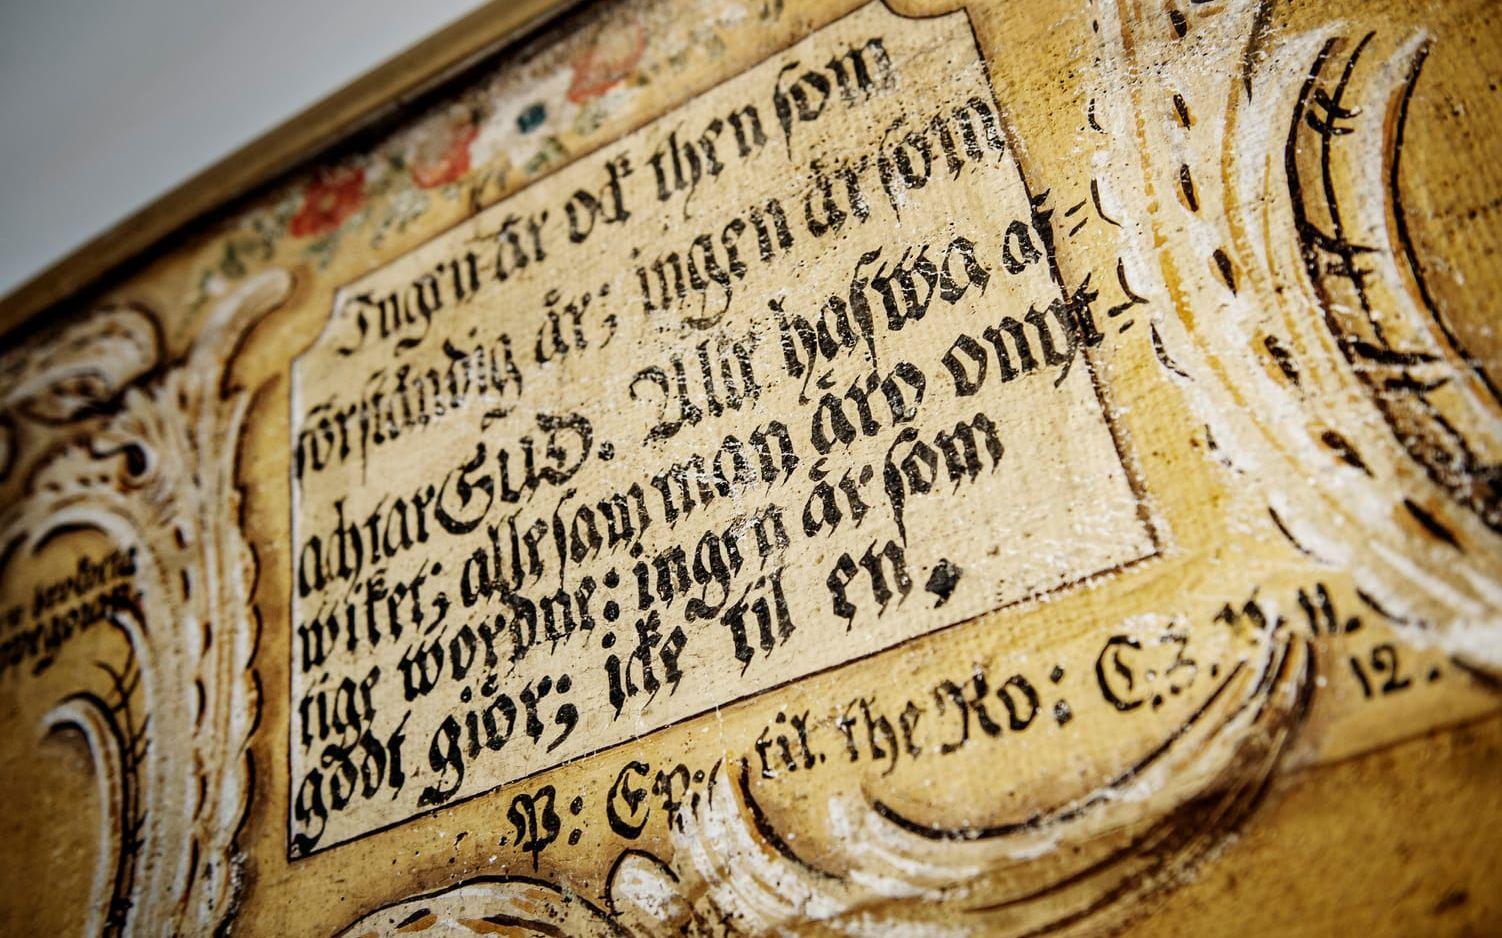 Ingen är ock then som
förståndig är; ingen är som
achtar GUD. Alle hafwa af=
wiket; allesamman äro onyt=
tige wordne: ingen är som
godt giör; icke til en.
P: Ep: til the Ro: C. 3. v. 11.
12.